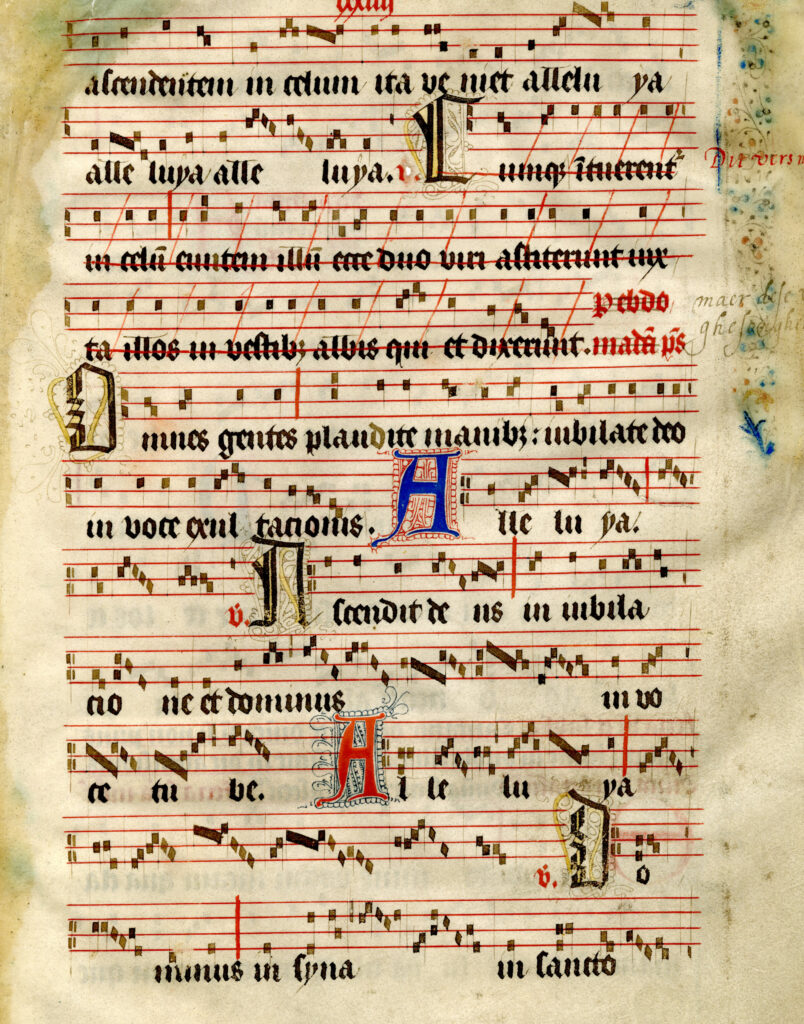 cxxiiij
ascendentem in celum ita ve niet allelu ya
alle luya alle luya. v. Cumq̃ ĩtuerent᷑
Dit vers
in celũ euntem illũ ecce duo viri astiterunt iux
ta illos in vestibꝫ albis qui et dixerunt. p ebdo
madã p̃s
maer dese
Omnes gentes plaudite manibꝫ : iubilate deo
in voce exul tacionis. Alle lu ya.
v̓. Ascendit de us in iubila
cio ne et dominus in vo
ce tu be. Al le lu ya
v̓. Do
minus in syna in sancto